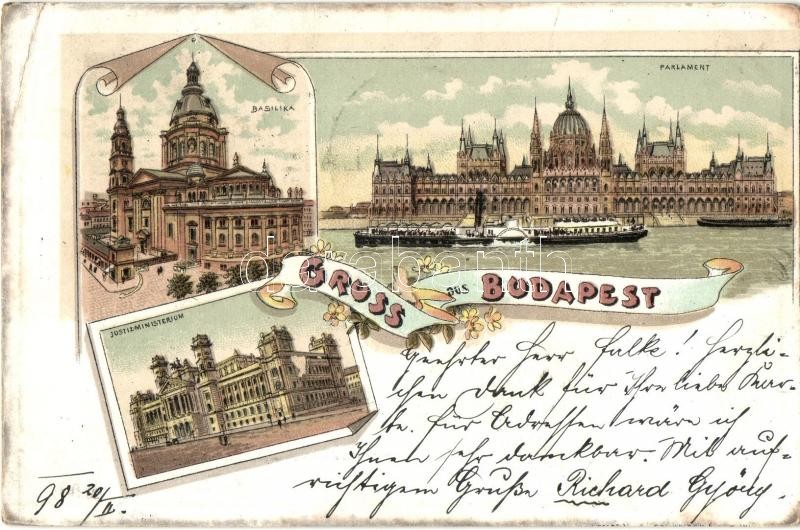 BASILIKA
PARLAMENT
GRUSS aus BUDAPEST
JUSTIZMINISTERIUM
Geehrter Herr Falke! Herzli-
chen Dank für Ihre liebe Kar-
te. Für Adressen wäre ich
Ihnen sehr dankbar. Mit auf-
richtigem Gruße Richard
98 20/II.
darabanth